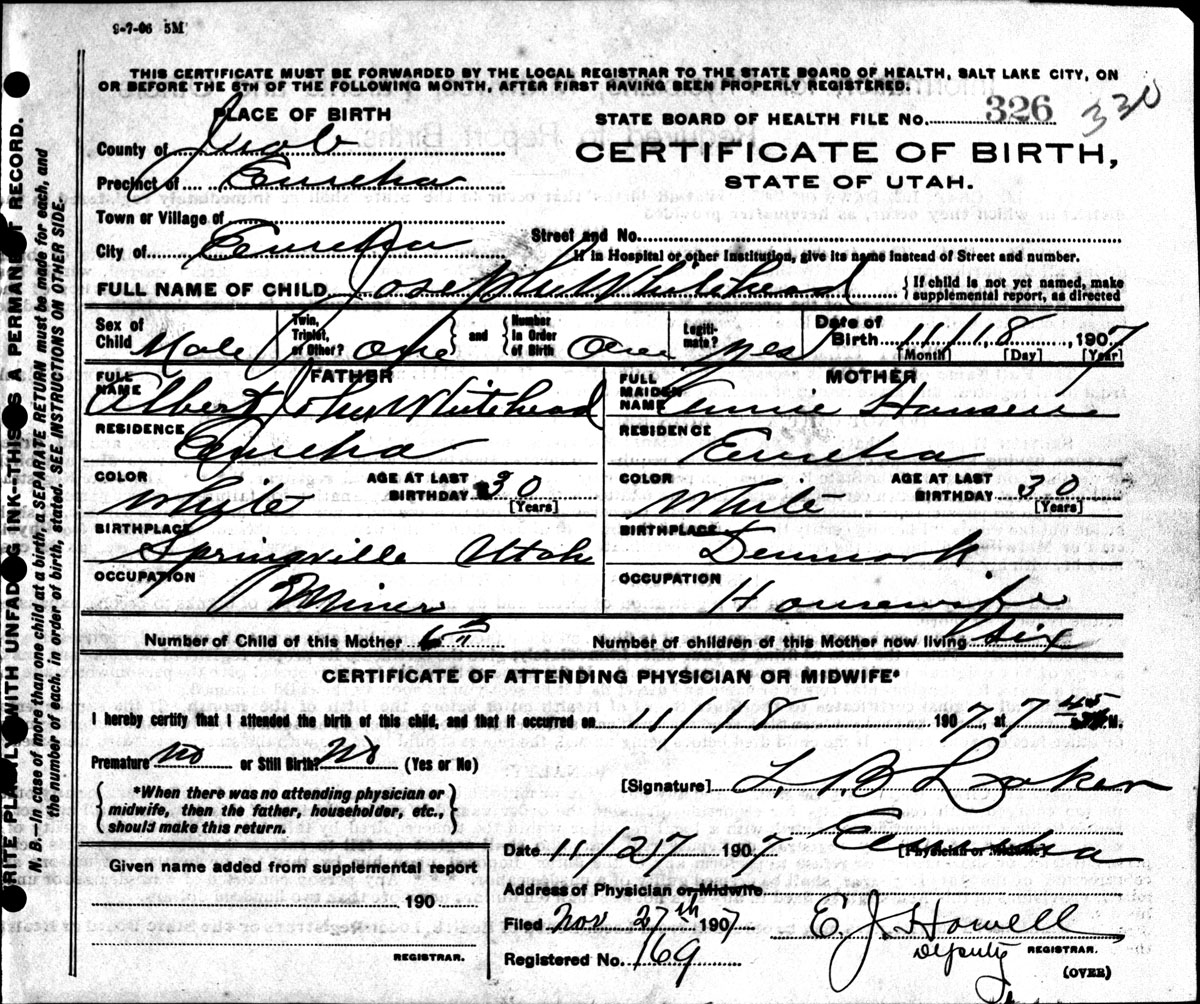 9-7-06 5M
THIS CERTIFICATE MUST BE FORWARDED BY THE LOCAL REGISTRAR TO THE STATE BOARD OF HEALTH, SALT LAKE CITY, ON
OR BEFORE THE 5TH OF THE FOLLOWING MONTH, AFTER FIRST HAVING BEEN PROPERLY REGISTERED.
PLACE OF BIRTH
STATE BOARD OF HEALTH FILE No. 326 330
County of Juab
CERTIFICATE OF BIRTH,
Precinct of Eureka
STATE OF UTAH.
Town or Village of
City of Eureka
Street and No.
If in Hospital or other Institution, give its name instead of Street and number.
FULL NAME OF CHILD Joseph Whitehead
If child is not yet named, make
supplemental report, as directed
Sex of Child Male Twin, Triplet, or Other? one and Number in Order of Birth One Legitimate? yes Date of Birth 11/18, 1907
[Month] [Day] [Year]
FATHER MOTHER
FULL NAME Albert John Whitehead FULL MAIDEN NAME Hansen
RESIDENCE Eureka RESIDENCE Eureka
COLOR White AGE AT LAST BIRTHDAY 30 [Years] COLOR White AGE AT LAST BIRTHDAY 30 [Years]
BIRTHPLACE Springville Utah BIRTHPLACE Denmark
OCCUPATION Miner OCCUPATION Housewife
Number of Child of this Mother 6th Number of children of this Mother now living six
CERTIFICATE OF ATTENDING PHYSICIAN OR MIDWIFE*
I hereby certify that I attended the birth of this child, and that it occurred on 11/18 1907, at 7 45 M.
Premature? No or Still Birth? No (Yes or No)
[Signature] L. B. Laker
*When there was no attending physician or
midwife, then the father, householder, etc.,
should make this return.
Date 11/27 1907 Eureka
[Physician or Midwife]
Given name added from supplemental report
190
Address of Physician or Midwife
Filed Nov 27th 1907 E. J. Howell
Deputy REGISTRAR.
REGISTRAR.
Registered No. 169
(OVER)
WRITE PLAINLY WITH UNFADING INK—THIS IS A PERMANENT RECORD.
N. B.—In case of more than one child at a birth, a SEPARATE RETURN must be made for each, and
the number of each, in order of birth, stated. SEE INSTRUCTIONS ON OTHER SIDE.